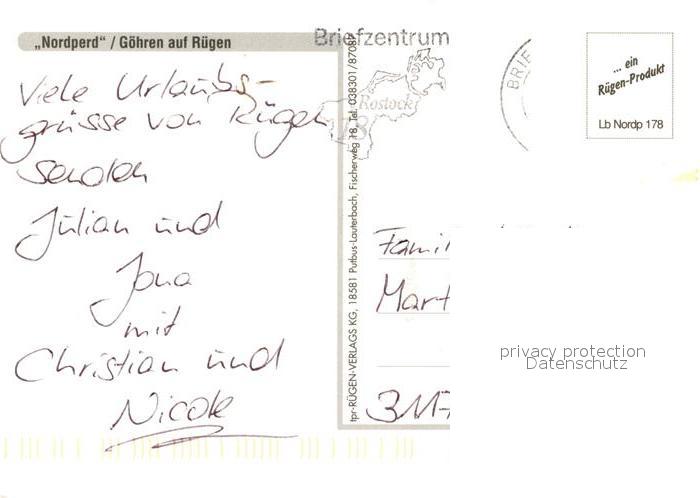 „Nordperd“ / Göhren auf Rügen
Viele Urlaubs-
grüsse von Rügen
senden
Julian und
Jona
mit
Christian und
Nicole
tpr-RÜGEN-VERLAGS KG, 18581 Putbus-Lauterbach, Fischerweg 18, Tel. 038301/8708
Briefzentrum
Rostock
18
BRIEF
... ein
Rügen-Produkt
Lb Nordp 178
Famil
Mart
3117
privacy protection
Datenschutz